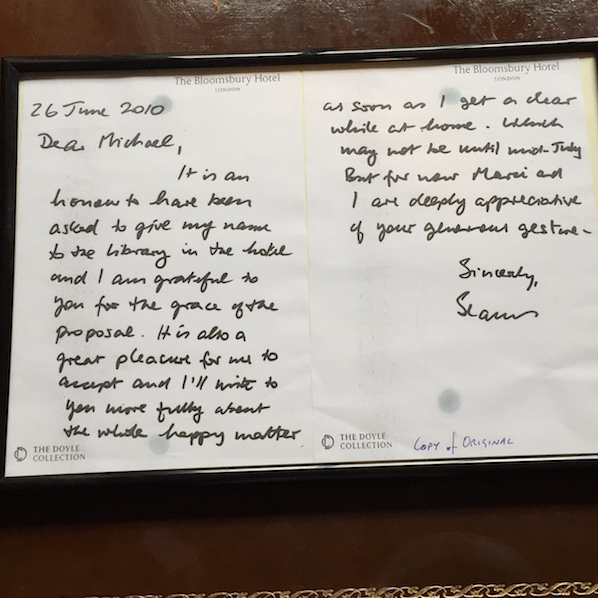 The Bloomsbury Hotel
LONDON
26 June 2010
Dear Michael,
It is an
honour to have been
asked to give my name
to the library in the hotel
and I am grateful to
you for the grace of the
proposal. It is also a
great pleasure for me to
accept and I'll write to
you more fully about
the whole happy matter
THE DOYLE
COLLECTION
The Bloomsbury Hotel
LONDON
as soon as I get a clear
while at home. Which
may not be until mid-July
But for now Marie and
I are deeply appreciative
of your generous gesture -
Sincerely,
Seamus
THE DOYLE
COLLECTION
COPY of ORIGINAL